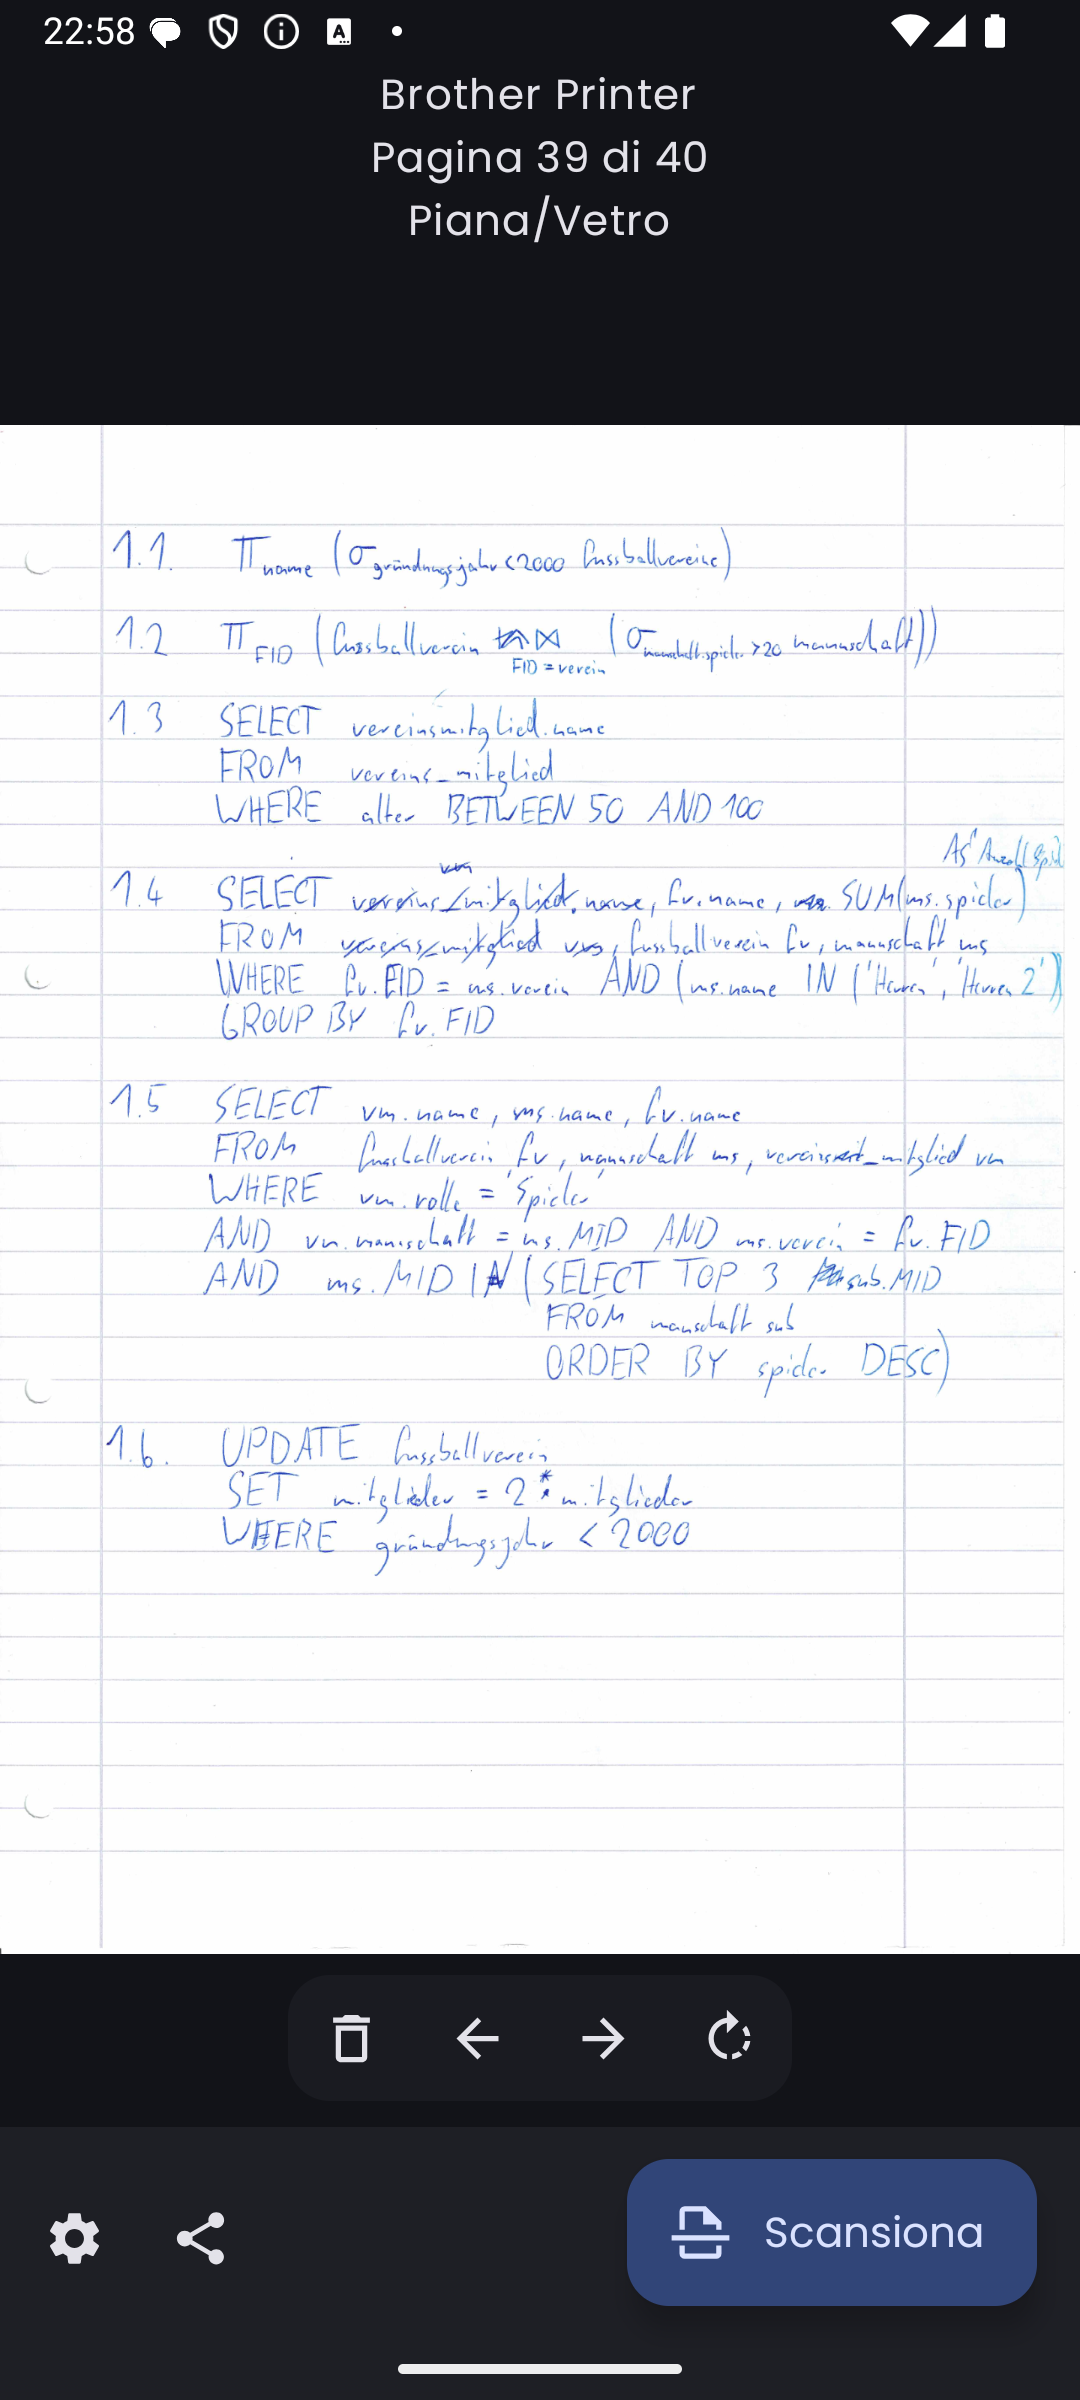 22:58
Brother Printer
Pagina 39 di 40
Piana/Vetro
1.1. π name (σ gründungsjahr<2000 fussballvereine)
1.2 π FID (fussballverein ⋈ FID=verein (σ mannschaft.spieler >20 mannschaft))
1.3 SELECT vereinsmitglied.name
FROM vereins_mitglied
WHERE alter BETWEEN 50 AND 100
AS Anzahl Spiel
1.4 SELECT fv.name, SUM(ms.spieler)
FROM fussballverein fv, mannschaft ms
WHERE fv.FID = ms.verein AND (ms.name IN ('Herren', 'Herren 2')
GROUP BY fv.FID
1.5 SELECT vm.name, ms.name, fv.name
FROM fussballverein fv, mannschaft ms, vereins_mitglied vm
WHERE vm.rolle = 'Spieler'
AND vm.mannschaft = ms.MID AND ms.verein = fv.FID
AND ms.MID IN (SELECT TOP 3 sub.MID
FROM mannschaft sub
ORDER BY spieler DESC)
1.6. UPDATE fussballverein
SET mitglieder = 2 * mitglieder
WHERE gründungsjahr < 2000
Scansiona